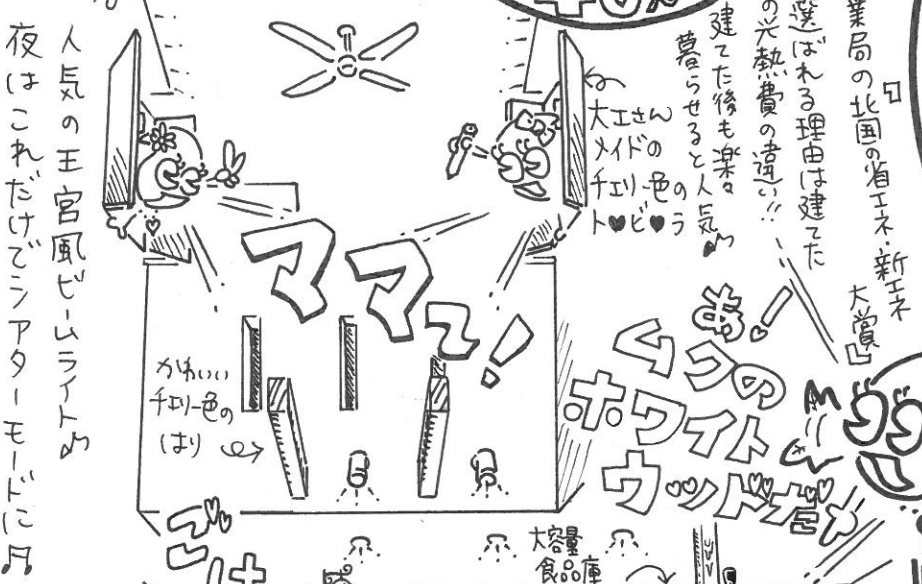 業局の北国の省エネ・新エネ
大賞」
選ばれる理由は建てた
の光熱費の違い!!
建てた後も楽々
暮らせると人気♪
大工さん
メイドの
チェリー色の
ト♥ビ♥ラ
ママ〜!
あ!
ムクの
ホワイト
ウッドだや
かわいい
チェリー色の
はり
人気の王宮風ビームライト♪
夜はこれだけでシアターモードに♬
大容量
食品庫